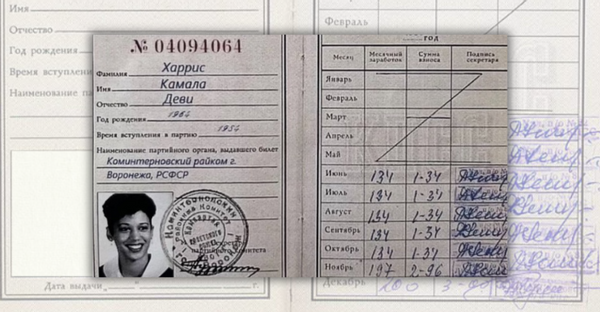 Отчество
Год рождения
Время вступлени
Наименование па
Дата выдачи „ “ г.
Февраль
№ 04094064
Фамилия Харрис
Имя Камала
Отчество Деви
Год рождения
Время вступления в партию
Наименование партийного органа, выдавшего билет
Коминтерновский райком г.
Воронежа, РСФСР
ГОД
Месяц Месячный заработок Сумма взноса Подпись секретаря
Январь
Февраль
Март
Апрель
Май
Июнь 134 1-34
Июль 134 1-34
Август 134 1-34
Сентябрь 134 1-34
Октябрь 134 1-34
Ноябрь 197 2-96
Декабрь